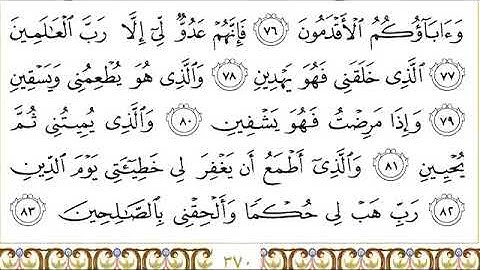 وَءَابَآؤُكُمُ ٱلْأَقْدَمُونَ ٧٦ فَإِنَّهُمْ عَدُوٌّ لِّىٓ إِلَّا رَبَّ ٱلْعَٰلَمِينَ
٧٧ ٱلَّذِى خَلَقَنِى فَهُوَ يَهْدِينِ ٧٨ وَٱلَّذِى هُوَ يُطْعِمُنِى وَيَسْقِينِ
٧٩ وَإِذَا مَرِضْتُ فَهُوَ يَشْفِينِ ٨٠ وَٱلَّذِى يُمِيتُنِى ثُمَّ
يُحْيِينِ ٨١ وَٱلَّذِىٓ أَطْمَعُ أَن يَغْفِرَ لِى خَطِيٓـَٔتِى يَوْمَ ٱلدِّينِ
٨٢ رَبِّ هَبْ لِى حُكْمًا وَأَلْحِقْنِى بِٱلصَّٰلِحِينَ ٨٣
٣٧٠